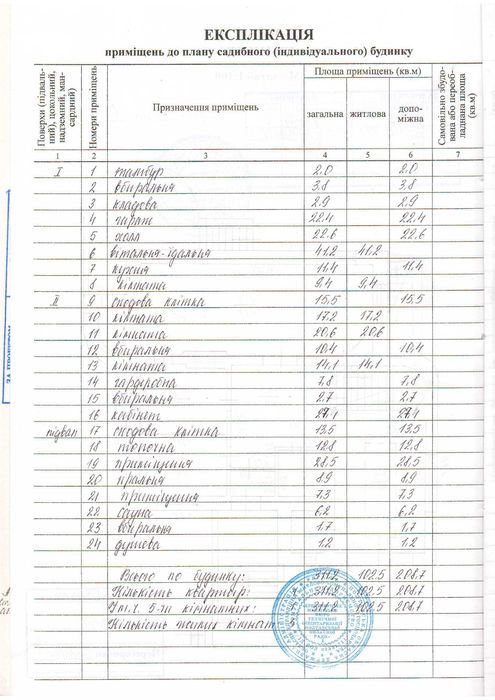 ЕКСПЛІКАЦІЯ
приміщень до плану садибного (індивідуального) будинку
Поверхи (підвальний), цокольний, надземний, мансардний)
Номери приміщень
Призначення приміщень
Площа приміщень (кв.м)
загальна житлова допоміжна
Самовільно збудована або переобладнана площа (кв.м)
1 2 3 4 5 6 7
I 1 тамбур 2.0 2.0
2 вбиральня 3.8 3.8
3 кладова 2.9 2.9
4 гараж 22.4 22.4
5 холл 22.6 22.6
6 вітальня-їдальня 41.2 41.2
7 кухня 11.4 11.4
8 кімната 9.4 9.4
II 9 сходова клітка 15,5 15,5
10 кімната 17.2 17.2
11 кімната 20.6 20.6
12 вбиральня 10,4 10,4
13 кімната 14,1 14,1
14 гардеробна 7.8 7.8
15 вбиральня 2.7 2.7
16 кабінет
підвал 17 сходова клітка 13.5 13.5
18 топочна 12.8 12,8
19 приміщення 28.5 28,5
20 пральня 8.9 8.9
21 приміщення 7.3 7.3
22 сауна 6,2 6,2
23 вбиральня 1.7 1,7
24 душова 1.2 1.2
Всього по будинку: 311.2 102.5 208.7
Кількість квартир: 311.2 102.5 208.7
У т.ч. 5-ти кімнатних: 311.2 102.5 208.7
Кількість жилих кімнат: